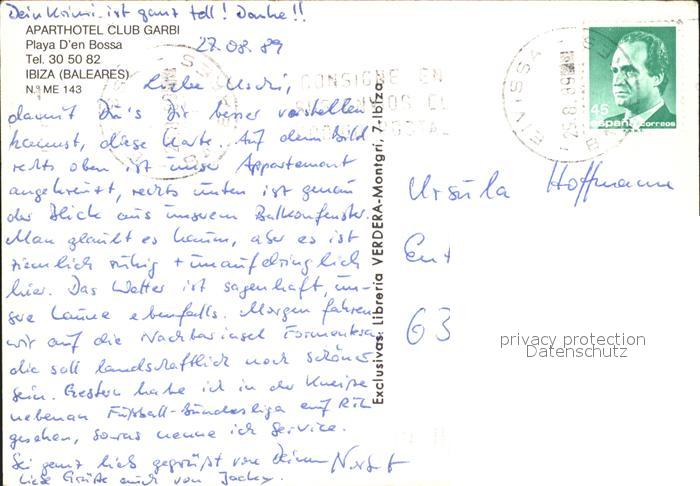 Dein Krimi ist ganz toll! Danke!!
APARTHOTEL CLUB GARBI
Playa D'en Bossa
Tel. 30 50 82
IBIZA (BALEARES)
N.º ME 143
27.08.89
Liebe Uschi,
damit Du's Dir besser vorstellen
kannst, diese Karte. Auf dem Bild
rechts oben ist unser Appartement
angekreuzt, rechts unten ist genau
der Blick aus unserem Balkonfenster.
Man glaubt es kaum, aber es ist
ziemlich ruhig + unaufdringlich
hier. Das Wetter ist sagenhaft, un-
sere Laune ebenfalls. Morgen fahren
wir auf die Nachbarinsel Formentera
die soll landschaftlich noch schöner
sein. Gestern habe ich in der Kneipe
nebenan Fußball-Bundesliga auf RTL
gesehen, sowas nenne ich Service.
Sei ganz lieb gegrüßt von Deinem Norbert
Liebe Grüße auch von Jackey.
Exclusivas: Libreria VERDERA-Montgri, 7-Ibiza
CONSIGNE EN
POSTAL
EIVISSA
28.8.89
45
españa correos
Ursula Hoffmann
63
privacy protection
Datenschutz